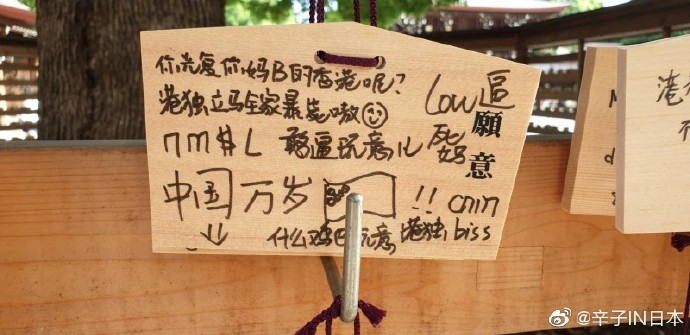 你光复你妈B的香港呢?
港独立马全家暴毙嗷
Low逼
願意
nm$L 憨逼玩意儿 死妈
中国万岁 !! cnm
什么鸡巴玩意 港独 biss
港
@辛子IN日本